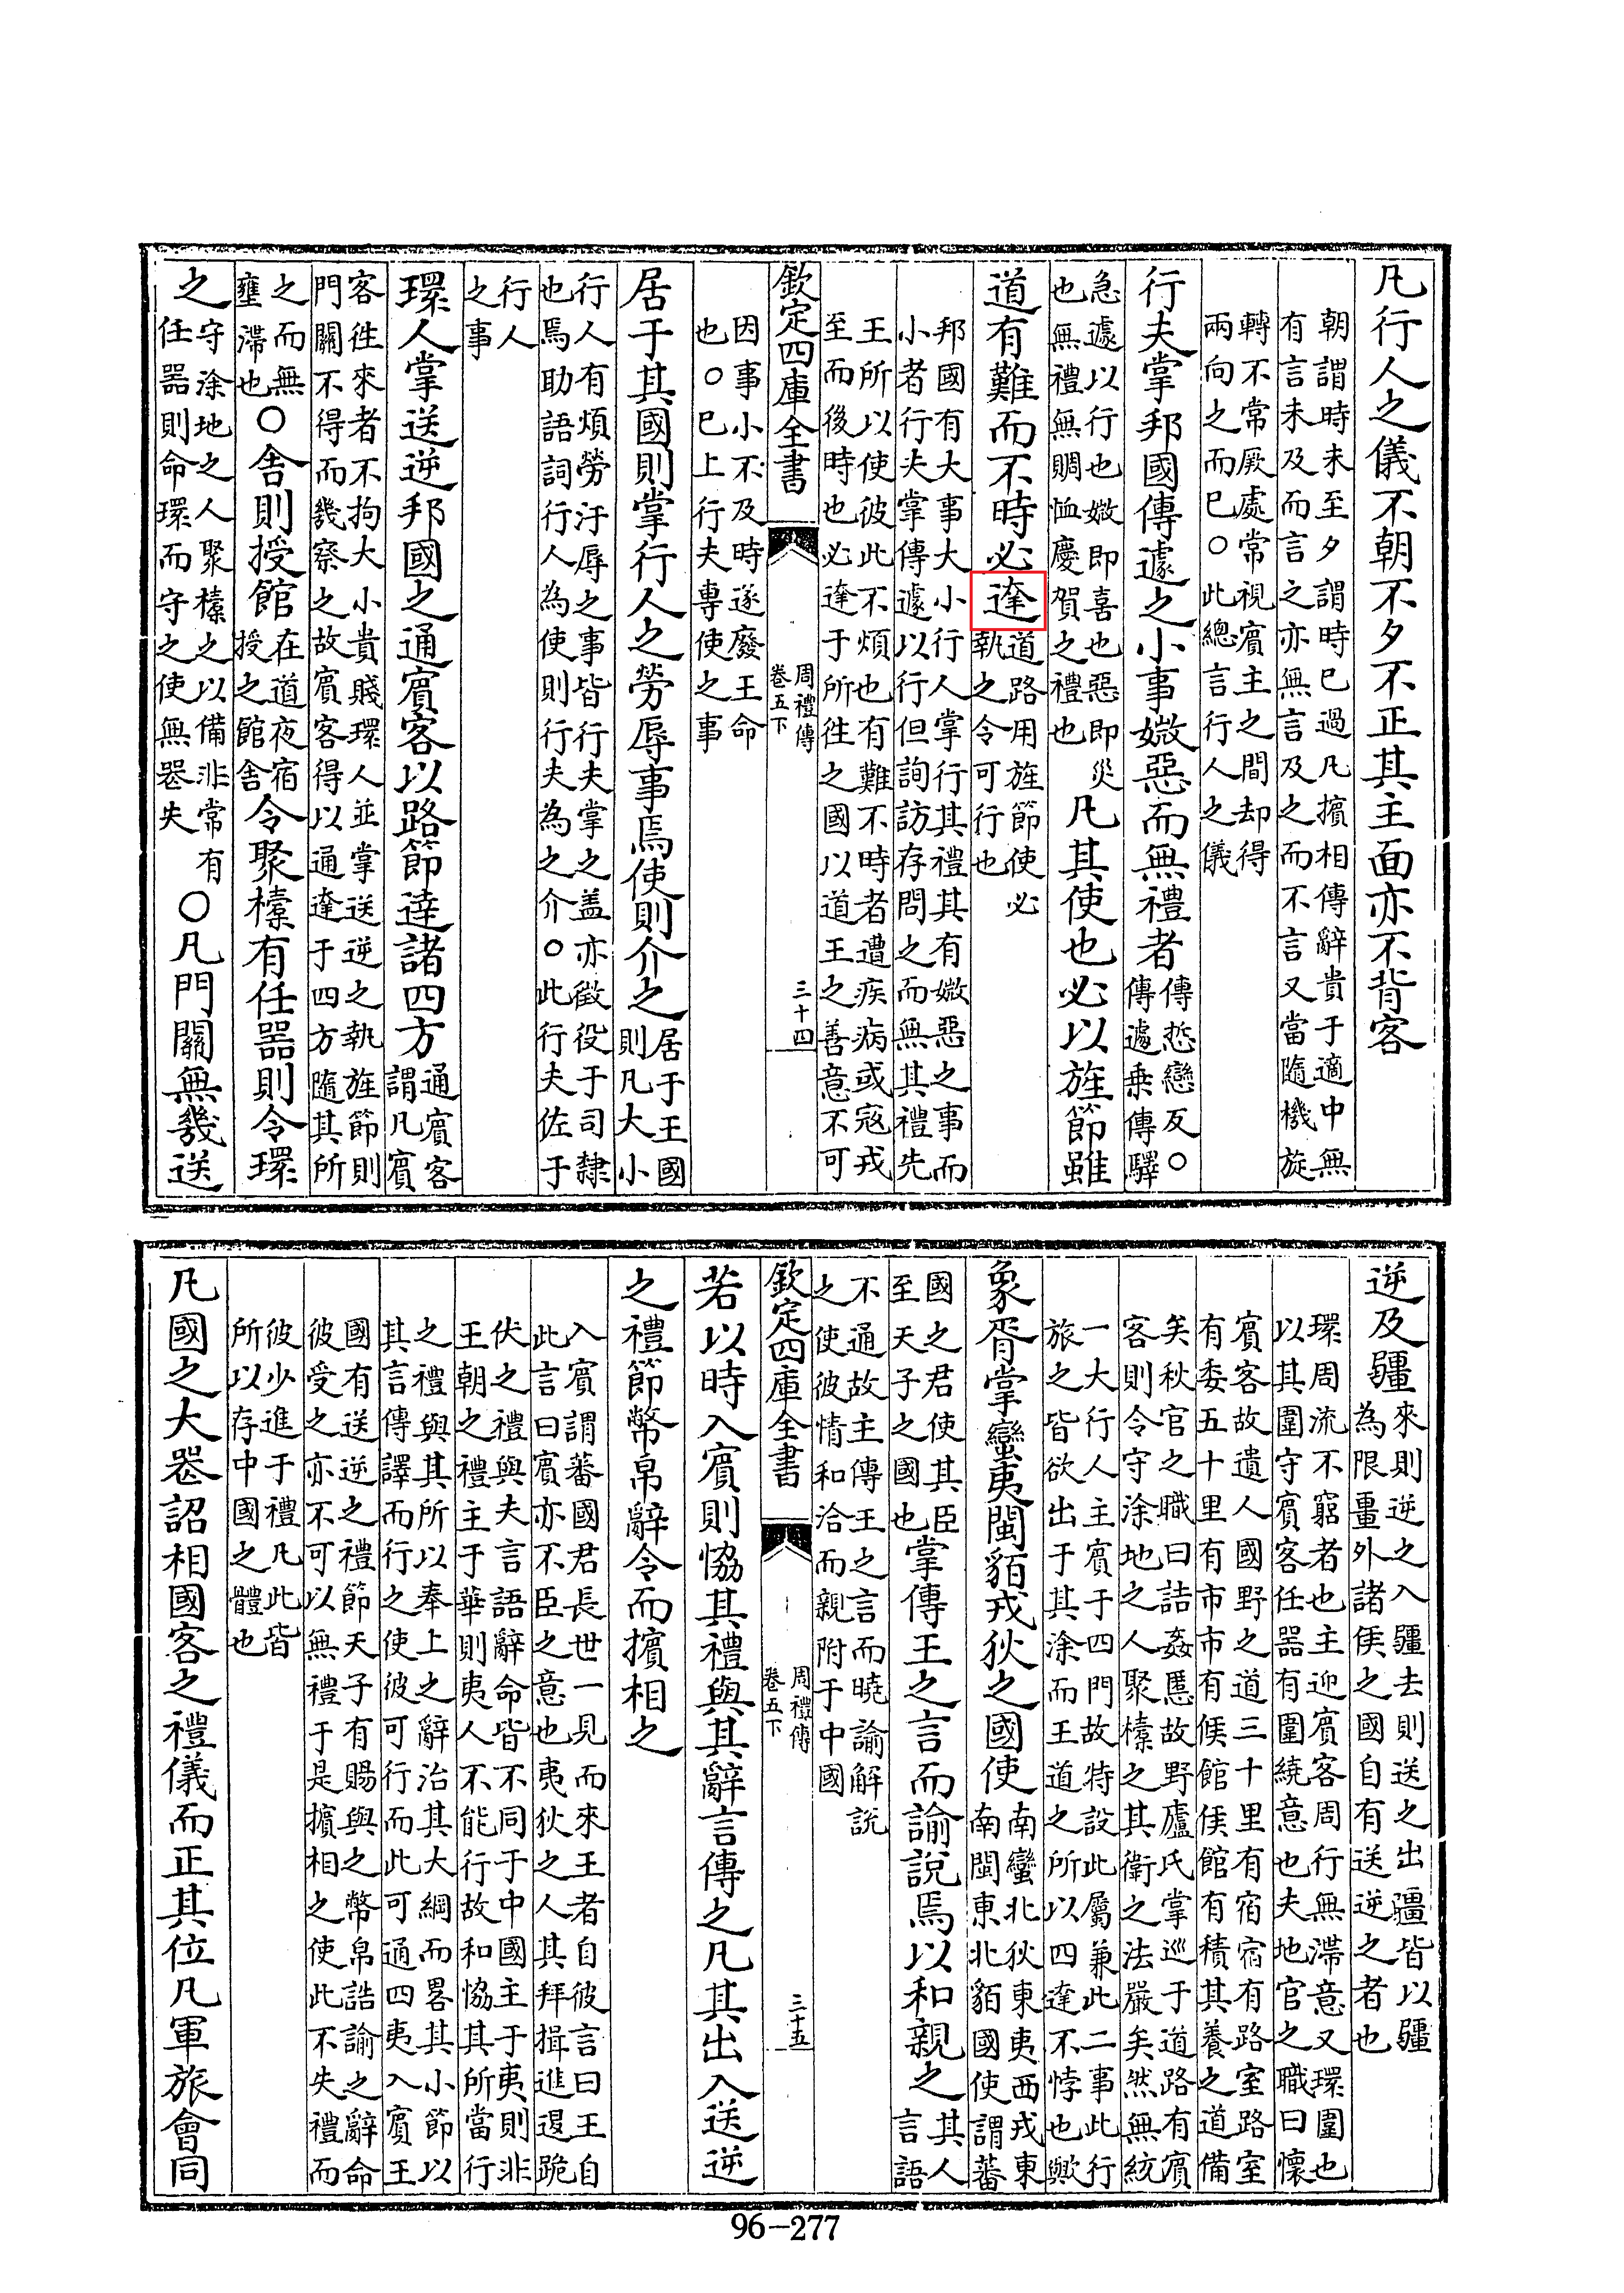 凡行人之儀不朝不夕不正其主面亦不背客
朝謂時未至夕謂時已過凡擯相傳辭貴于適中無
有言未及而言之亦無言及之而不言又當隨機旋
轉不常厥處常視賓主之間却得
兩向之而已○此總言行人之儀
行夫掌邦國傳遽之小事媺惡而無禮者
傳戀反○
傳遽乗傳驛
急遽以行也媺即喜也惡即災
也無禮無賙恤慶賀之禮也
凡其使也必以旌節雖
道有難而不時必達
道路用旌節使必
執之令可行也
邦國有大事大小行人掌行其禮其有媺惡之事而
小者行夫掌傳遽以行但詢訪存問之而無其禮先
王所以使彼此不煩也有難不時者遭疾病或寇戎
至而後時也必達于所往之國以道王之善意不可
欽定四庫全書
周禮傳
卷五下
三十四
因事小不及時遂廢王命
也○已上行夫專使之事
居于其國則掌行人之勞辱事焉使則介之
居于王國
則凡大小
行人有煩勞汙辱之事皆行夫掌之盖亦徵役于司隸
也焉助語詞行人為使則行夫為之介○此行夫佐于
行人
之事
環人掌送逆邦國之通賓客以路節達諸四方
通賓客
謂凡賓
客往來者不拘大小貴賤環人並掌送逆之執旌節則
門關不得而幾察之故賓客得以通達于四方隨其所
之而無
壅滯也
○舍則授館
在道夜宿
授之館舍
令聚㯓有任器則令環
之
守涂地之人聚㯓之以備非常有
任器則命環而守之使無器失
○凡門關無幾送
逆及疆
來則逆之入疆去則送之出疆皆以疆
為限畺外諸侯之國自有送逆之者也
環周流不窮者也主迎賓客周行無滯意又環圍也
以其圍守賓客任器有圍繞意也夫地官之職曰懷
賓客故遺人國野之道三十里有宿宿有路室路室
有委五十里有市市有候館候館有積其養之道備
矣秋官之職曰詰姦慝故野廬氏掌巡于道路有賓
客則令守涂地之人聚㯓之其衛之法嚴矣然無統
一大行人主賓于四門故特設此屬兼此二事此行
旅之皆欲出于其涂而王道之所以四達不悖也歟
象胥掌蠻夷閩貊戎狄之國使
南蠻北狄東夷西戎東
南閩東北貊國使謂蕃
國之君使其臣
至天子之國也
掌傳王之言而諭說焉以和親之
其人
言語
不通故主傳王之言而曉諭解說
之使彼情和洽而親附于中國
欽定四庫全書
周禮傳
卷五下
三十五
若以時入賓則恊其禮與其辭言傳之凡其出入送逆
之禮節幣帛辭令而擯相之
入賓謂蕃國君長世一見而來王者自彼言曰王自
此言曰賓亦不臣之意也夷狄之人其拜揖進退跪
伏之禮與夫言語辭命皆不同于中國主于夷則非
王朝之禮主于華則夷人不能行故和恊其所當行
之禮與其所以奉上之辭治其大綱而畧其小節以
其言傳譯而行之使彼可行而此可通四夷入賓王
國有送逆之禮節天子有賜與之幣帛誥諭之辭命
彼受之亦不可以無禮于是擯相之使此不失禮而
彼少進于禮凡此皆
所以存中國之體也
凡國之大喪詔相國客之禮儀而正其位凡軍旅會同
96-277